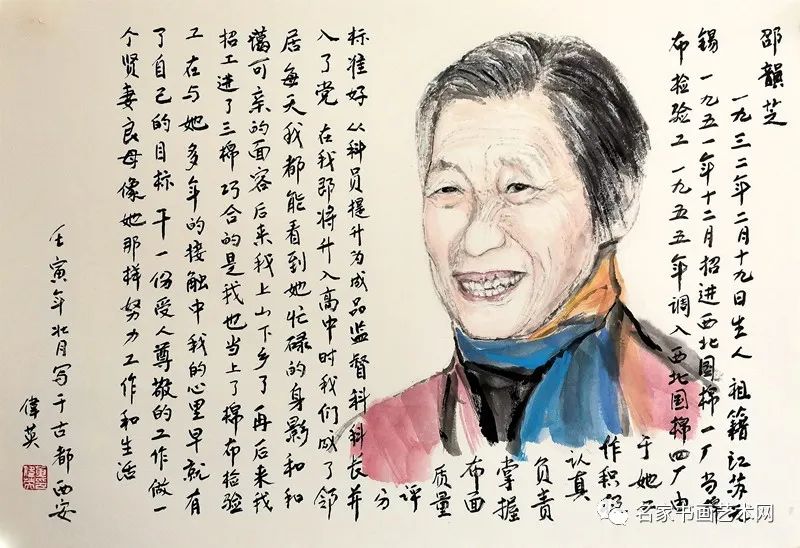 邵韻芝
一九三二年二月十九日生人 祖籍江苏无
锡 一九五一年十二月招进西北国棉一厂当棉
布检验工 一九五五年调入西北国棉四厂由
于她工
作积极
认真
负责
掌握
布面
质量
评
分
标准好 从科员提升为成品监督科科长并
入了党 在我即将升入高中时我们成了邻
居 每天我都能看到她忙碌的身影和和
蔼可亲的面容 后来我上山下乡了 再后来我
招工进了三棉 巧合的是我也当上了棉布检验
工 在与她多年的接触中 我的心里早就有
了自己的目标 干一份受人尊敬的工作 做一
个贤妻良母 像她那样努力工作和生活
壬寅年壮月写于古都西安
偉英
名家书画艺术网